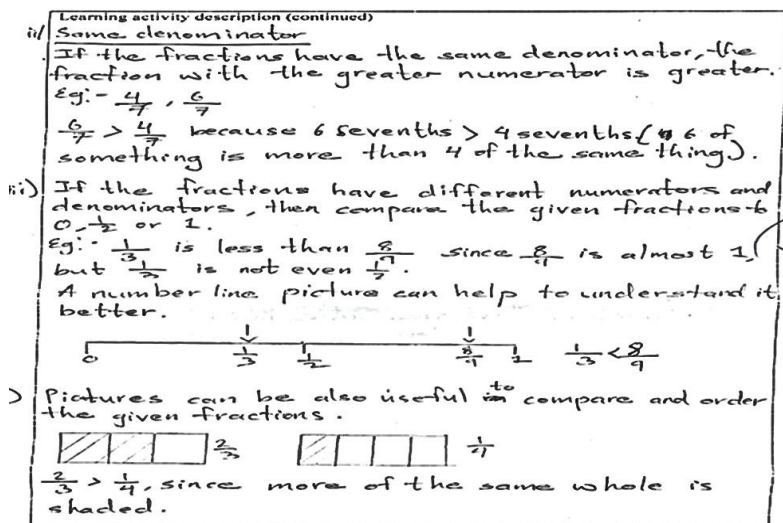 Learning activity description (continued)
ii/ Same denominator
If the fractions have the same denominator, the
fraction with the greater numerator is greater.
Eg:- 4/7, 6/7
6/7 > 4/7 because 6 sevenths > 4 sevenths (6 of
something is more than 4 of the same thing).
iii) If the fractions have different numerators and
denominators, then compare the given fractions to
0, 1/2 or 1.
Eg:- 1/3 is less than 8/9 since 8/9 is almost 1,
but 1/3 is not even 1/2.
A number line picture can help to understand it
better.
0 1/3 1/2 8/9 1 1/3 < 8/9
) Pictures can be also useful to compare and order
the given fractions.
2/3 1/4
2/3 > 1/4, since more of the same whole is
shaded.